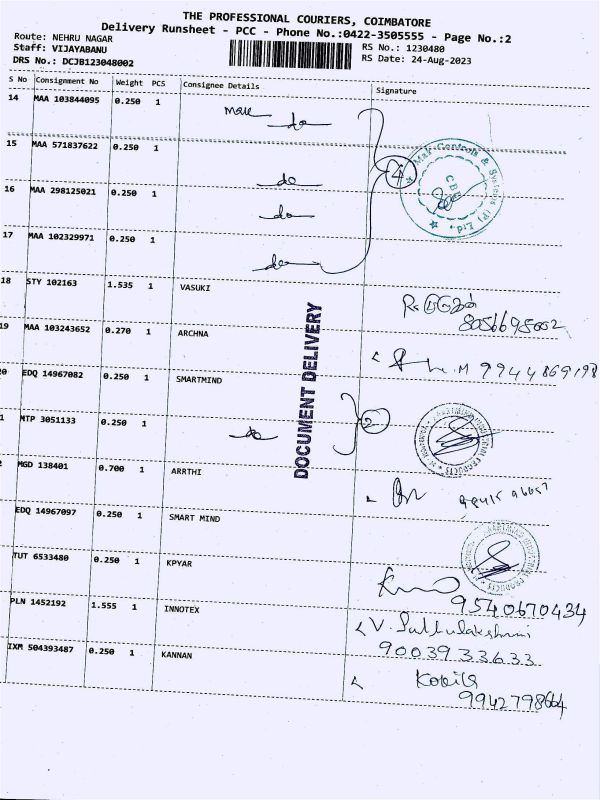 THE PROFESSIONAL COURIERS, COIMBATORE
Delivery Runsheet - PCC - Phone No.:0422-3505555 - Page No.:2
Route: NEHRU NAGAR RS No.: 1230480
Staff: VIJAYABANU RS Date: 24-Aug-2023
DRS No.: DCJB123048002
S No Consignment No Weight PCS Consignee Details Signature
14 MAA 103844095 0.250 1 do
15 MAA 571837622 0.250 1 do
16 MAA 298125021 0.250 1 do
17 MAA 102329971 0.250 1 do
4
Mak Controls & Systems (P) Ltd.
CBE
18 STY 102163 1.535 1 VASUKI
8056695002
19 MAA 103243652 0.270 1 ARCHNA
M 9944869198
20 EDQ 14967082 0.250 1 SMARTMIND
1 MTP 3051133 0.250 1 do
2
2 MGD 138401 0.700 1 ARRTHI
EDQ 14967097 0.250 1 SMART MIND
TUT 6533480 0.250 1 KPYAR
9540670434
PLN 1452192 1.555 1 INNOTEX
V.
9003933633
IXM 504393487 0.250 1 KANNAN
Kokila
9942798664
DOCUMENT DELIVERY